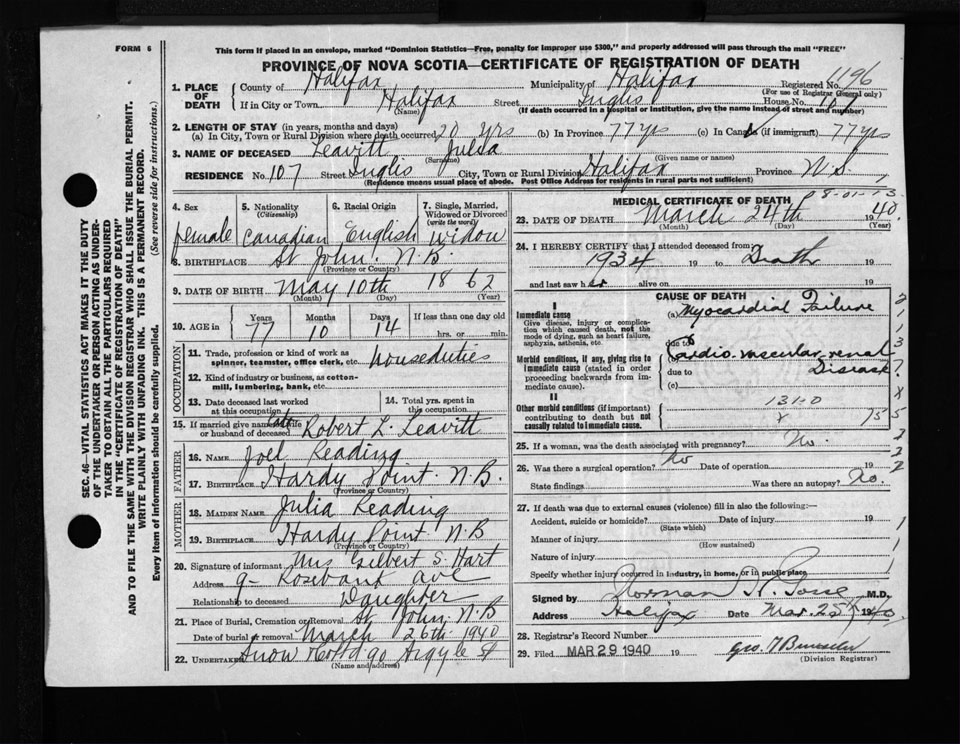 FORM 6
This form if placed in an envelope, marked "Dominion Statistics—Free, penalty for improper use $300," and properly addressed will pass through the mail "FREE"
PROVINCE OF NOVA SCOTIA—CERTIFICATE OF REGISTRATION OF DEATH
1. PLACE OF DEATH
County of Halifax Municipality of Halifax Registered No. 1196
(For use of Registrar General only)
If in City or Town Halifax Street Inglis House No. 107
(Name) (If death occurred in a hospital or institution, give the name instead of street and number)
2. LENGTH OF STAY (in years, months and days)
(a) In City, Town or Rural Division where death occurred 20 yrs (b) In Province 77 yrs (c) In Canada (if immigrant) 77 yrs
3. NAME OF DECEASED Leavitt Julia
(Surname) (Given name or names)
RESIDENCE No. 107 Street Inglis City, Town or Rural Division Halifax Province N.S.
(Residence means usual place of abode. Post Office Address for residents in rural parts not sufficient)
4. Sex 5. Nationality (Citizenship) 6. Racial Origin 7. Single, Married, Widowed or Divorced (write the word)
female Canadian English Widow
8. BIRTHPLACE St John. N.B.
(Province or Country)
9. DATE OF BIRTH May 10th 1862
(Month) (Day) (Year)
10. AGE in Years Months Days If less than one day old
77 10 14 hrs. or min.
OCCUPATION
11. Trade, profession or kind of work as spinner, teamster, office clerk, etc. Houseduties
12. Kind of industry or business, as cotton-mill, lumbering, bank, etc.
13. Date deceased last worked at this occupation 14. Total yrs. spent in this occupation
15. If married give name of wife or husband of deceased Robert L. Leavitt
FATHER
16. NAME Joel Reading
17. BIRTHPLACE Hardy Point N.B.
(Province or Country)
MOTHER
18. MAIDEN NAME Julia Reading
19. BIRTHPLACE Hardy Point N.B
(Province or Country)
20. Signature of informant Mrs Gilbert S. Hart
Address 9- Rosebank ave
Relationship to deceased Daughter
21. Place of Burial, Cremation or Removal St John N.B
Date of burial or removal March 26th 1940
22. UNDERTAKER Snow Argyle St
(Name and address)
MEDICAL CERTIFICATE OF DEATH
23. DATE OF DEATH March 24th 1940.
(Month) (Day) (Year)
24. I HEREBY CERTIFY that I attended deceased from
1934 19 to Death 19
and last saw her alive on 19
CAUSE OF DEATH
I
Immediate cause (a) Myocardial Failure
Give disease, injury or complication which caused death, not the mode of dying, such as heart failure, asphyxia, asthenia, etc.
due to
Morbid conditions, if any, giving rise to immediate cause (stated in order proceeding backwards from immediate cause).
Cardio vascular renal
due to Disease
(c)
II
Other morbid conditions (if important) contributing to death but not causally related to immediate cause.
131-0
25. If a woman, was the death associated with pregnancy? No.
26. Was there a surgical operation? No Date of operation 19
State findings Was there an autopsy? No.
27. If death was due to external causes (violence) fill in also the following:—
Accident, suicide or homicide? Date of injury 19
(State which)
Manner of injury
(How sustained)
Nature of injury
Specify whether injury occurred in industry, in home, or in public place
Signed by Norman H. M.D.
Address Halifax Date Mar. 25 1940
28. Registrar's Record Number
29. Filed MAR 29 1940 19 Geo.
(Division Registrar)
SEC. 46—VITAL STATISTICS ACT MAKES IT THE DUTY
OF THE UNDERTAKER OR PERSON ACTING AS UNDER-
TAKER TO OBTAIN ALL THE PARTICULARS REQUIRED
IN THE "CERTIFICATE OF REGISTRATION OF DEATH"
AND TO FILE THE SAME WITH THE DIVISION REGISTRAR WHO SHALL ISSUE THE BURIAL PERMIT.
WRITE PLAINLY WITH UNFADING INK. THIS IS A PERMANENT RECORD.
Every item of information should be carefully supplied. (See reverse side for instructions.)